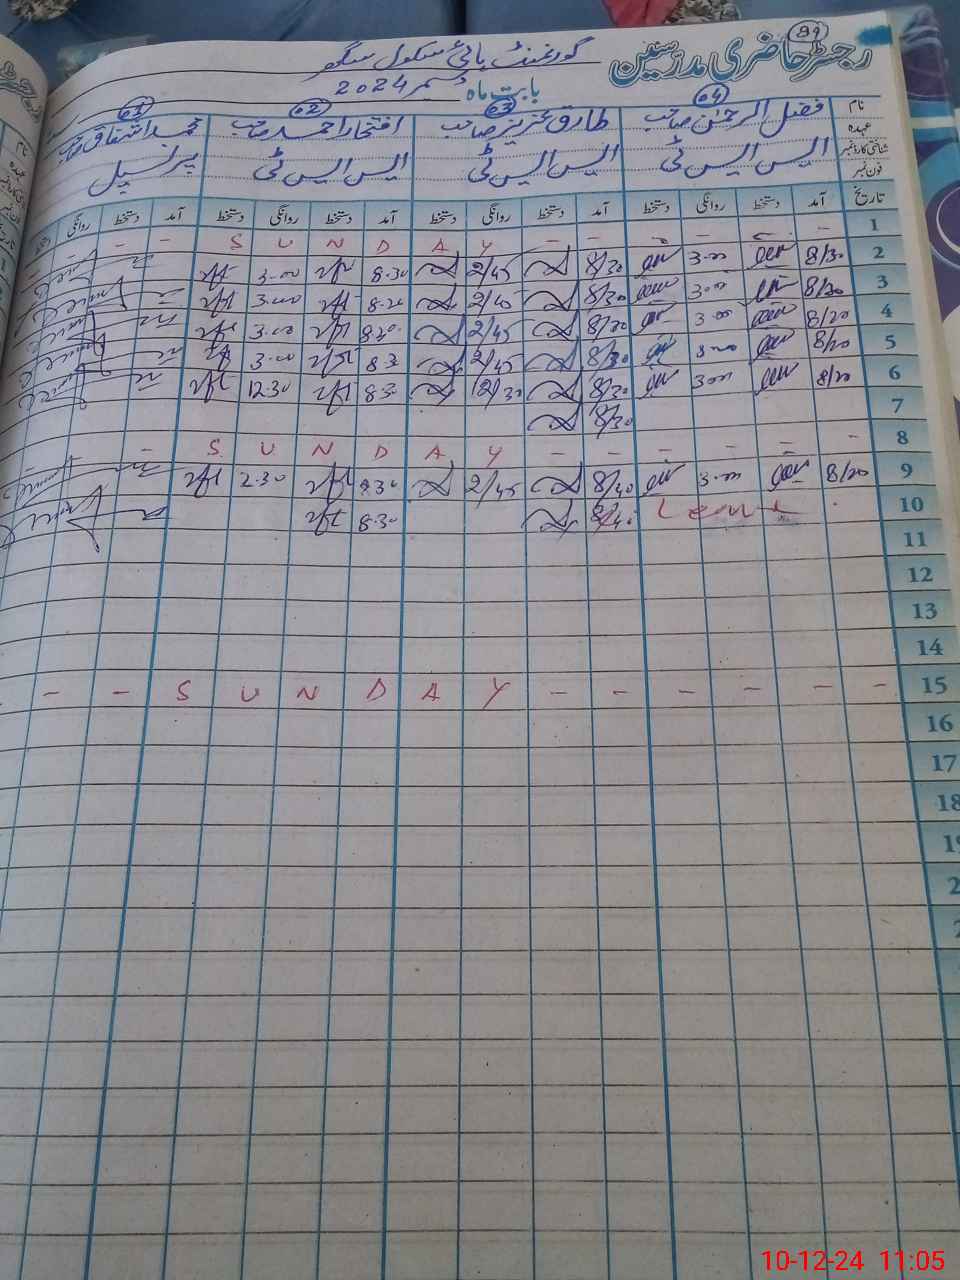 89
رجسٹر حاضری مدرسین
گورنمنٹ ہائی سکول سنگھر
بابت ماہ دسمبر 2024
04 03 02 01
نام فضل الرحمٰن صاحب طارق عزیز صاحب افتخار احمد صاحب محمد اشفاق صاحب
عہدہ ایس ایس ٹی ایس ایس ٹی ایس ایس ٹی پرنسپل
شناختی کارڈ نمبر
فون نمبر
تاریخ آمد دستخط روانگی دستخط آمد دستخط روانگی دستخط آمد دستخط روانگی دستخط آمد دستخط روانگی
- - S U N D A Y - - - - - - 1
3.00 8.30 2/45 8/30 3.00 8/30 2
3.00 8.20 2/45 8/30 3.00 8/20 3
3.00 8.20 2/45 8/20 3.00 8/20 4
3.00 8.30 2/45 8/30 3.00 8/20 5
12.30 8.30 12/30 8/30 3.00 8/20 6
8/30 7
- - S U N D A Y - - - - - - 8
2.30 8.30 2/45 8/40 3.00 8/20 9
8.30 8/40 Leave 10
11
12
13
14
- - S U N D A Y - - - - - - 15
16
17
18
10-12-24 11:05